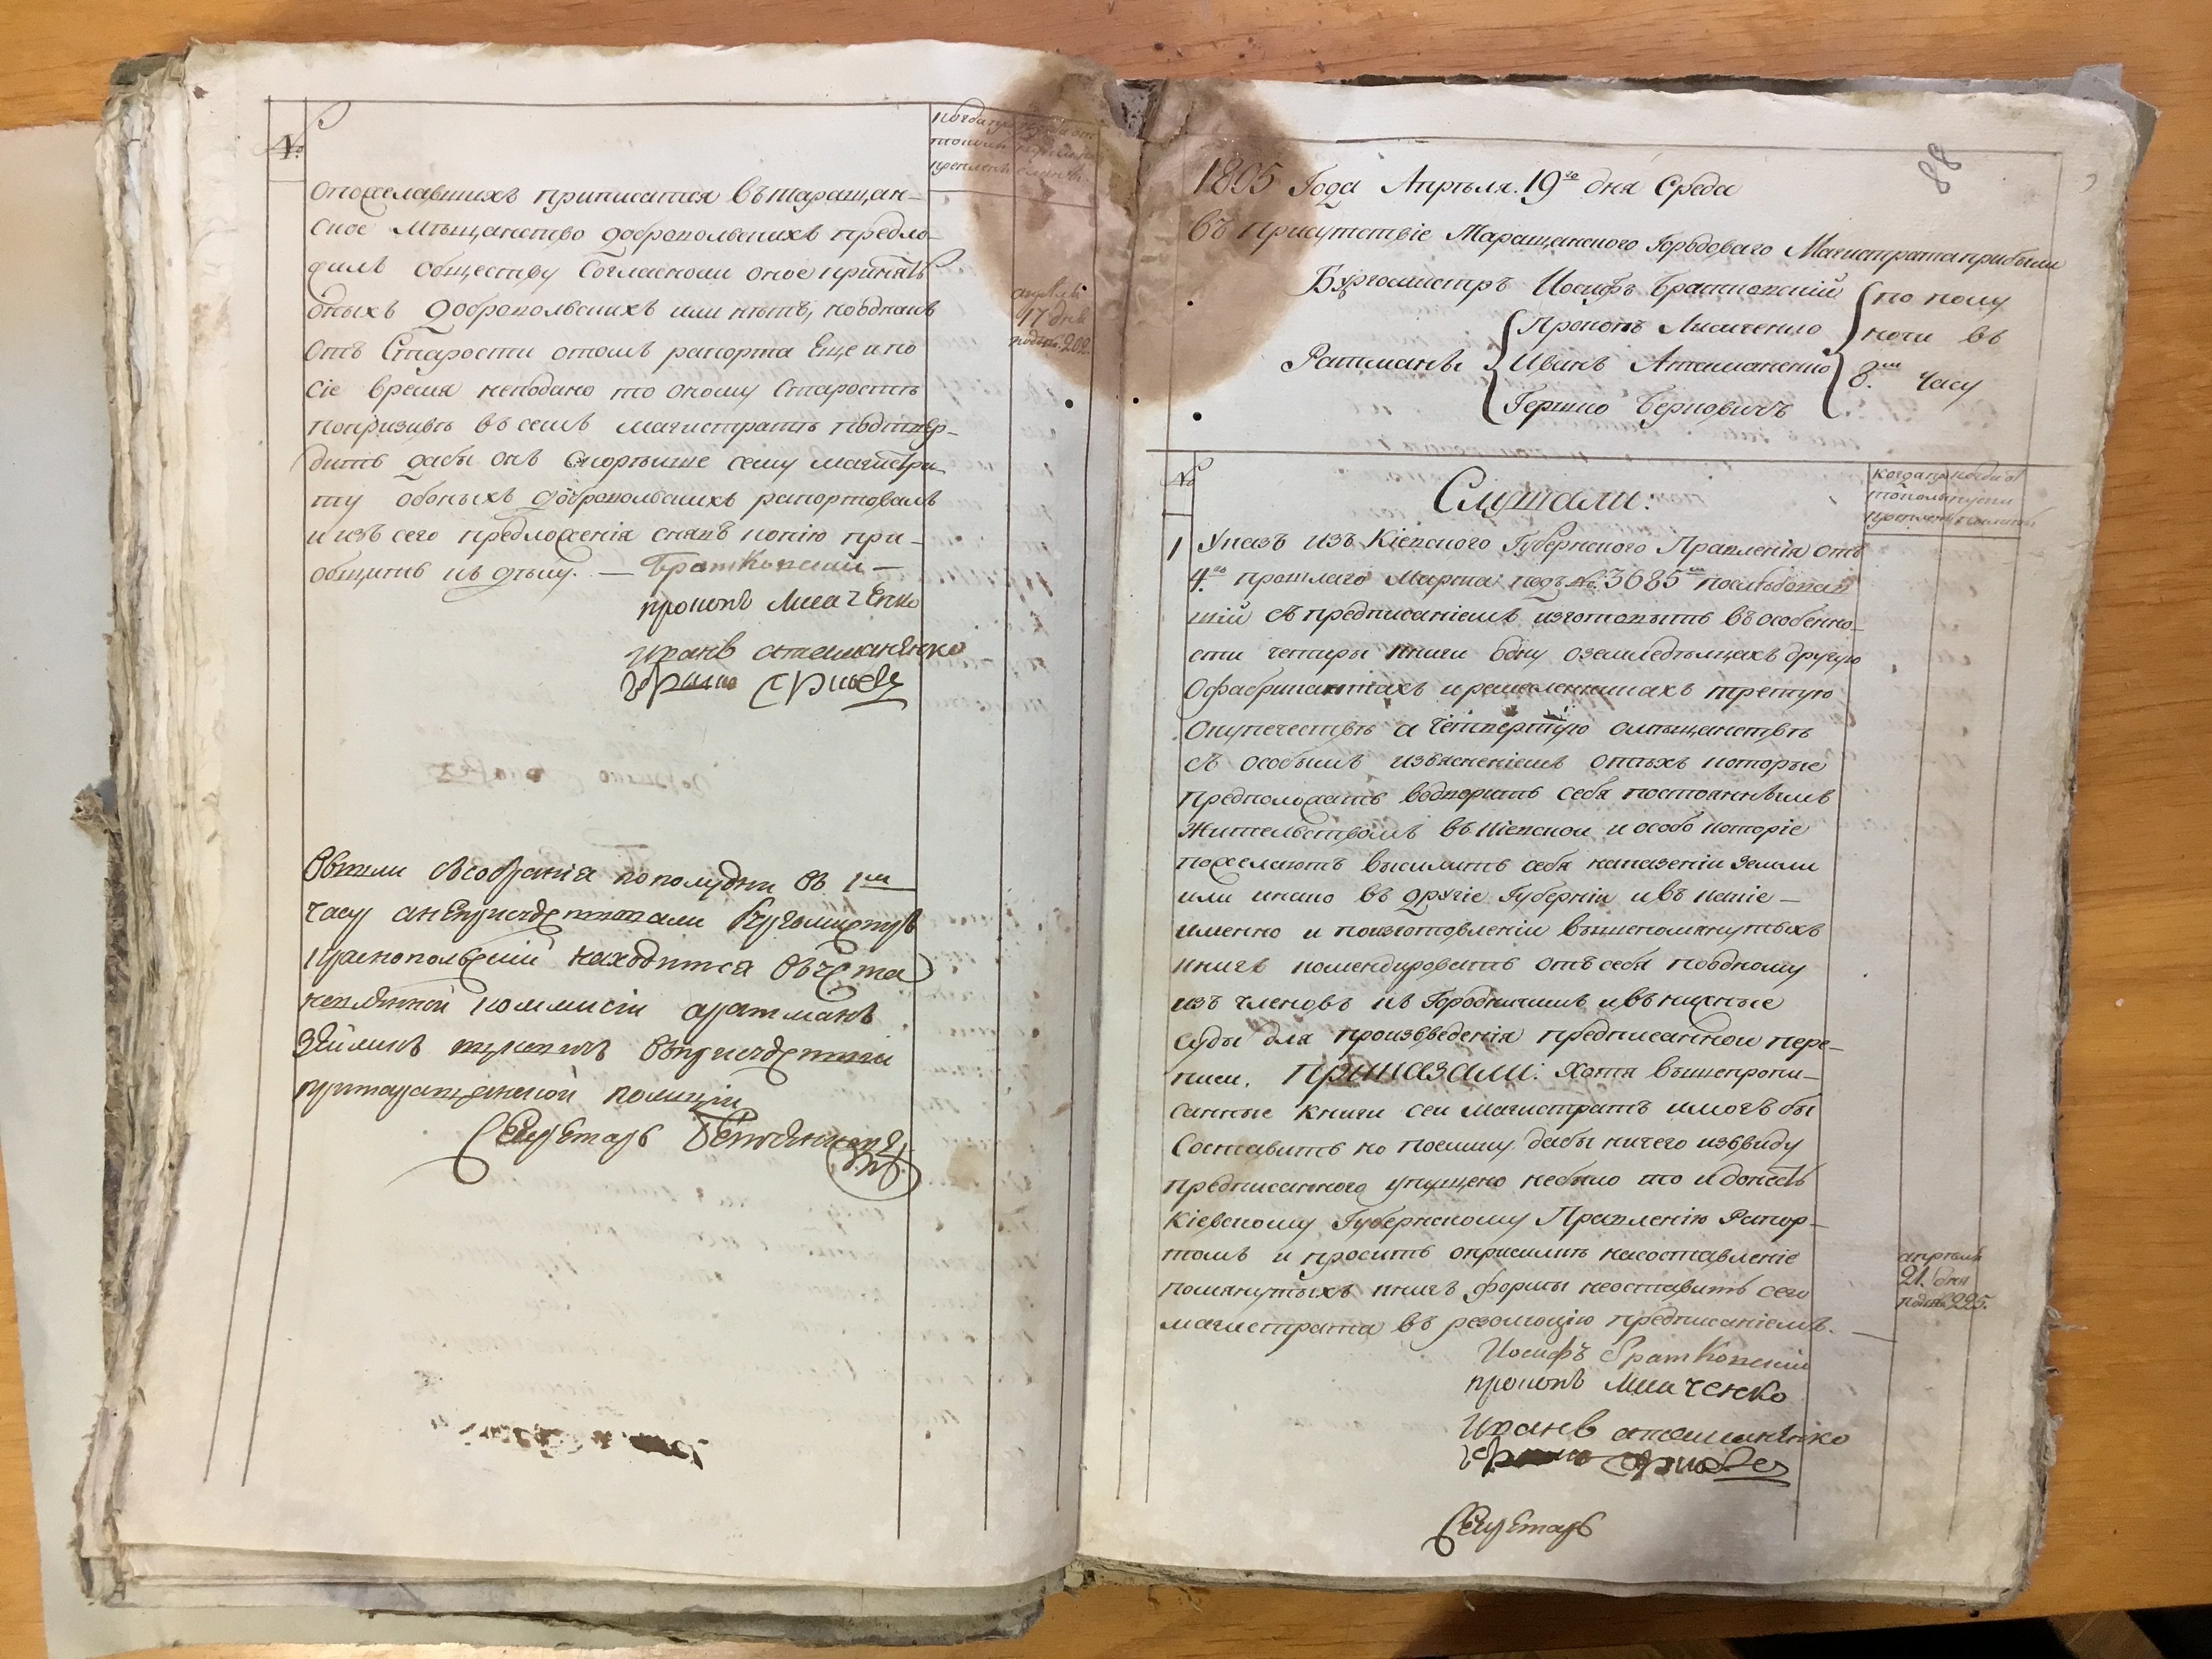 №
опожелавшихъ приписатся въ таращан-
ское мѣщанство добропольскихъ предло-
жилъ обществу согласноли оное принять
оныхъ добропольскихъ или нѣтъ, но однакъ
отъ Старости отомъ рапорта еще ипо
сіе время неподано то оному Старостѣ
попризывѣ въ семъ магистратѣ подтвер-
дить дабы онъ скорѣише сему магистра
ту обоныхъ добропольскихъ рапортовалъ
и изъ сего предложенія снявъ копію при-
общить къ дѣлу. — Братковский —
прокопъ Лисаченко
иванъ атаманенко
апрѣля
17 дня
подъ № 202.
Вышли съ собранія пополудни въ 1м
часу а неприсудствовали Бургомистръ
Краснопольский находится въ
коммисіи а ратманъ
въ присудствии
при таращанской полиции
Секретарь
88
1805 Года Апрѣля. 19го дня Среда
въ Присутствіе Таращанского Городоваго Магистрата прибыли
Бургомистръ Иосифъ Братковский
Ратманы
Прокопъ Лисаченко
Иванъ Атаманенко
Гершко Берковичъ
по полу
ночи въ
8м часу
№
Слушали:
1 Указъ изъ Кіевского Губернского Правленія отъ
4го прошлаго Марта подъ № 3685м последовав
ший съ предписаніемъ изготовить въ особенно-
сти четыри книги одну оземледѣлцахъ другую
Офабрикантахъ и ремесленникахъ третую
Окупечествѣ а четвертую омѣщанствѣ
съ особымъ изясненіемъ отѣхъ которые
предположатъ водворить себя постояннымъ
жительствомъ въ Кіевской и особо которіе
пожелаютъ высилить себя на казеніи земли
или инако въ другіе Губерніи и въ какіе —
именно и поизготовленіи вышепомянутыхъ
книгъ командировать отъ себя поодному
изъ членовъ къ Городничимъ и въ нижные
суды для произведенія предписанной пере-
писи. Приказали: Хотя вышепропи-
санные книги сей магистратъ и могъ бы
Составить но поелику дабы ничего изъвиду
предписанного упущено небыло то и донесть
Кіевскому Губернскому Правленію Рапор-
томъ и просить оприсилкѣ насоставленіе
помянутыхъ книгъ формы неоставить сего
магистрата въ резолюцію предписаніемъ. —
апрѣля
21. дня
подъ № 225.
Иосифъ Братковский
прокопъ Лисаченко
Иванъ атаманенко
Секретарь